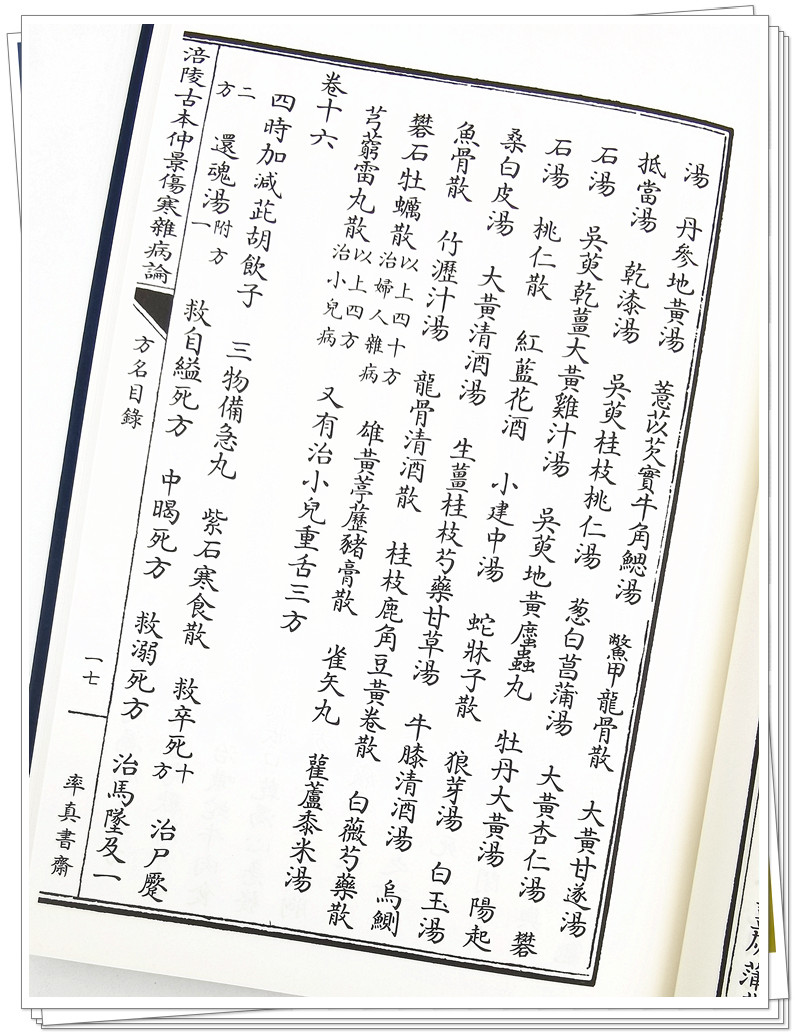 湯　丹參地黃湯　薏苡芡實牛角鰓湯　鱉甲龍骨散　大黃甘遂湯
抵當湯　乾漆湯　吳萸桂枝桃仁湯　葱白菖蒲湯　大黃杏仁湯　礬
石湯　吳萸乾薑大黃雞汁湯　吳萸地黃䗪蟲丸　牡丹大黃湯　陽起
石湯　桃仁散　紅藍花酒　小建中湯　蛇牀子散　狼芽湯　白玉湯
桑白皮湯　大黃清酒湯　生薑桂枝芍藥甘草湯　牛膝清酒湯　烏鰂
魚骨散　竹瀝汁湯　龍骨清酒散　桂枝鹿角豆黃卷散　白薇芍藥散
礬石牡蠣散以上四十方治婦人雜病　雄黃葶藶豬膏散　雀矢丸　雚蘆黍米湯
芎藭雷丸散以上四方治小兒病　又有治小兒重舌三方
卷十六
四時加減茈胡飲子　三物備急丸　紫石寒食散　救卒死十方　治尸蹷
二方　還魂湯附一方　救自縊死方　中暍死方　救溺死方　治馬墜及一
涪陵古本仲景傷寒雜病論　方名目錄　一七　率真書齋